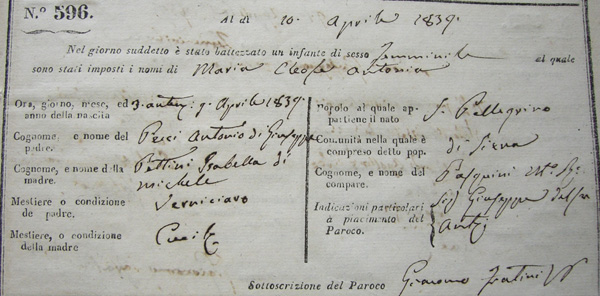 N.° 596. Al dì 10. Aprile 1839.
Nel giorno suddetto è stato battezzato un infante di sesso femminile al quale
sono stati imposti i nomi di Maria Cleofe Antonia
Ora, giorno, mese, ed 3. antem: 9. Aprile 1839.
anno della nascita
Cognome, e nome del Pecci Antonio di Giuseppe
padre.
Cognome, e nome della Pettini Isabella di
madre. Michele
Mestiere o condizione Verniciaro
de padre.
Mestiere, o condizione Cucit
della madre
Popolo al quale ap- S. Pellegrino
partiene il nato
Comunità nella quale è di Siena
compreso detto pop.
Cognome, e nome del Pasquini
compare.
Indicazioni particolari Giuseppe
a piacimento del Ant
Paroco.
Sottoscrizione del Paroco Giacomo Fratini